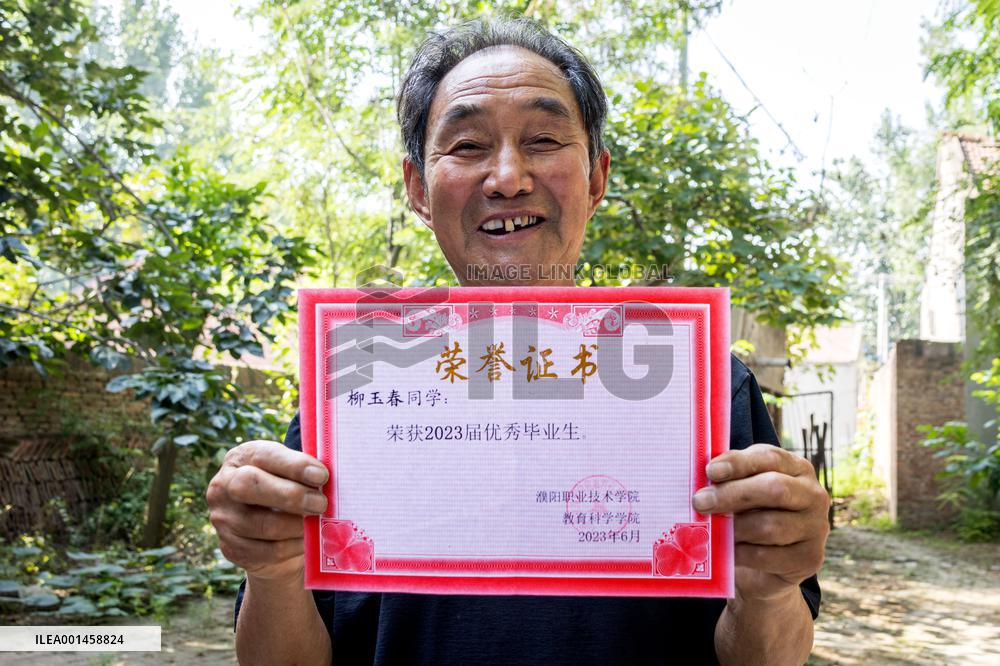 IMAGE LINK GLOBAL
ILG
荣誉证书
柳玉春同学：
荣获2023届优秀毕业生。
濮阳职业技术学院
教育科学学院
2023年6月
ILEA001458824